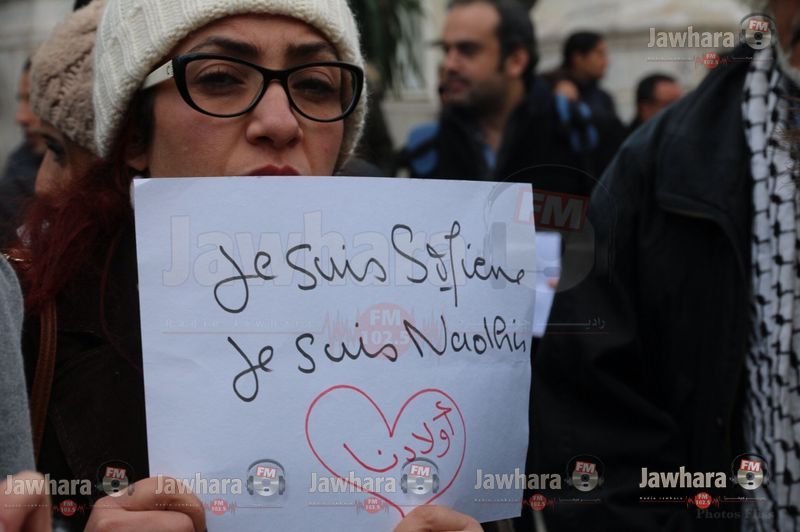 Jawhara FM
Je suis Sofiene
Je suis Nadhir
أولادنا
Jawhara FM
Radio Jawhara FM
FM
102.5
Jawhara FM
Jawhara FM
Jawhara FM
Jawhara FM
Photos Files